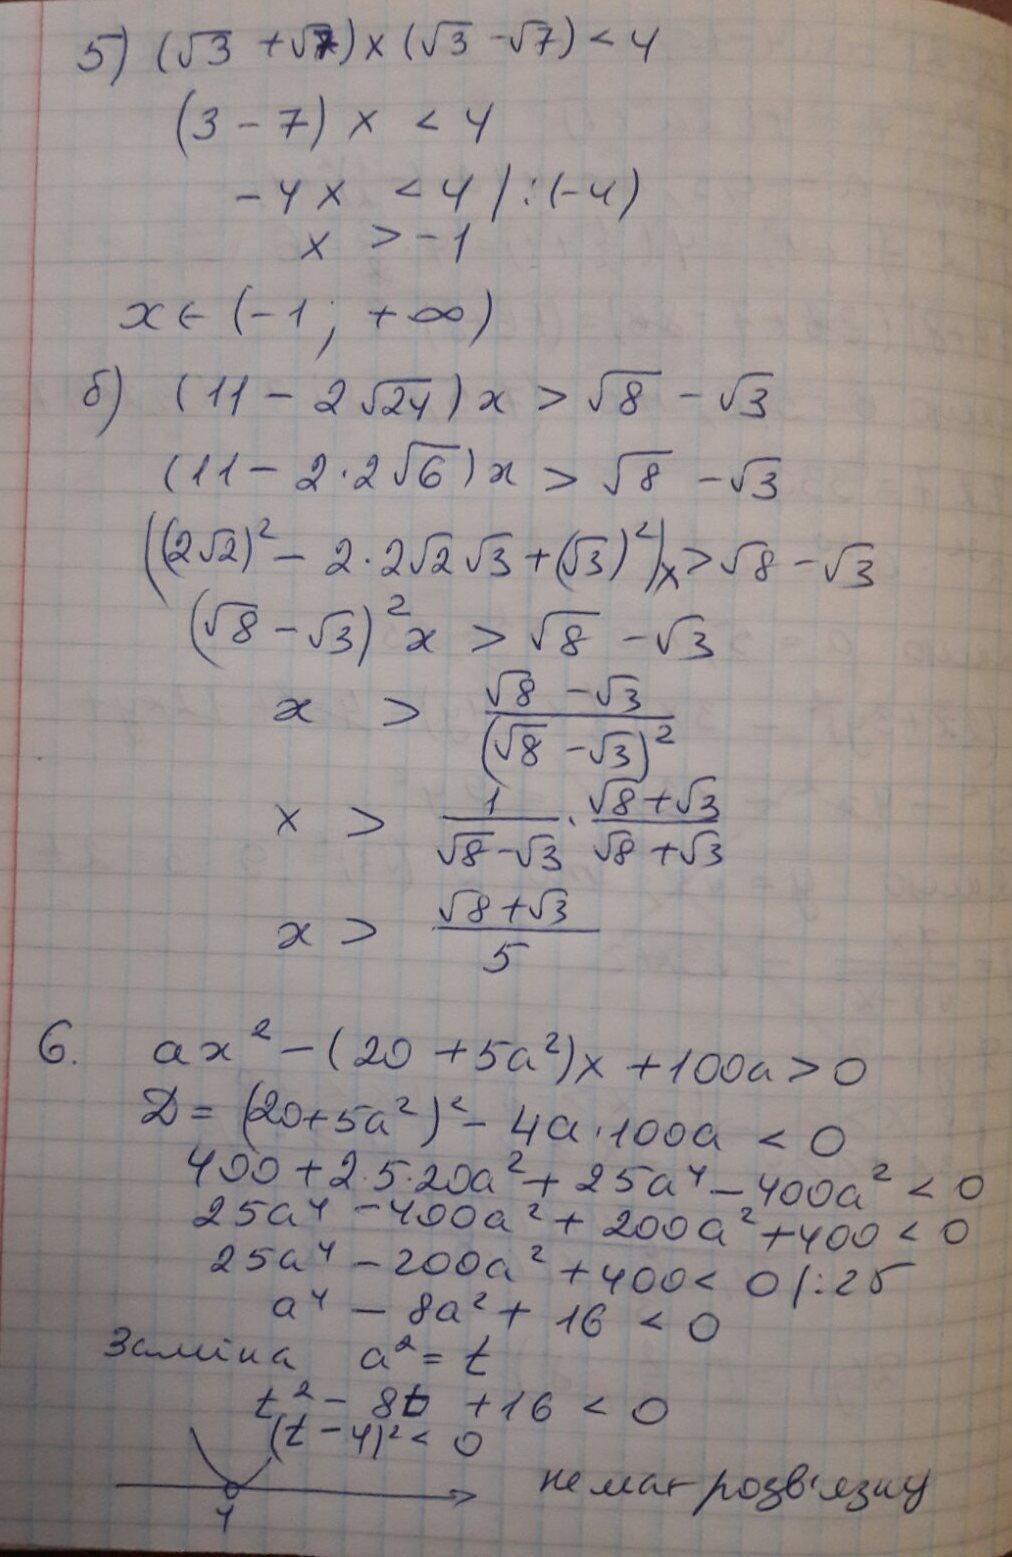 5) (√3 + √7)x(√3 - √7) < 4
(3 - 7)x < 4
-4x < 4 | :(-4)
x > -1
x ∈ (-1; +∞)
б) (11 - 2√24)x > √8 - √3
(11 - 2·2√6)x > √8 - √3
((2√2)² - 2·2√2√3 + (√3)²)x > √8 - √3
(√8 - √3)²x > √8 - √3
x > (√8 - √3)/(√8 - √3)²
x > 1/(√8 - √3) · (√8 + √3)/(√8 + √3)
x > (√8 + √3)/5
6. ax² - (20 + 5a²)x + 100a > 0
D = (20 + 5a²)² - 4a·100a < 0
400 + 2·5·20a² + 25a⁴ - 400a² < 0
25a⁴ - 400a² + 200a² + 400 < 0
25a⁴ - 200a² + 400 < 0 | :25
a⁴ - 8a² + 16 < 0
Заміна a² = t
t² - 8t + 16 < 0
(t - 4)² < 0
4
немає розв'язку